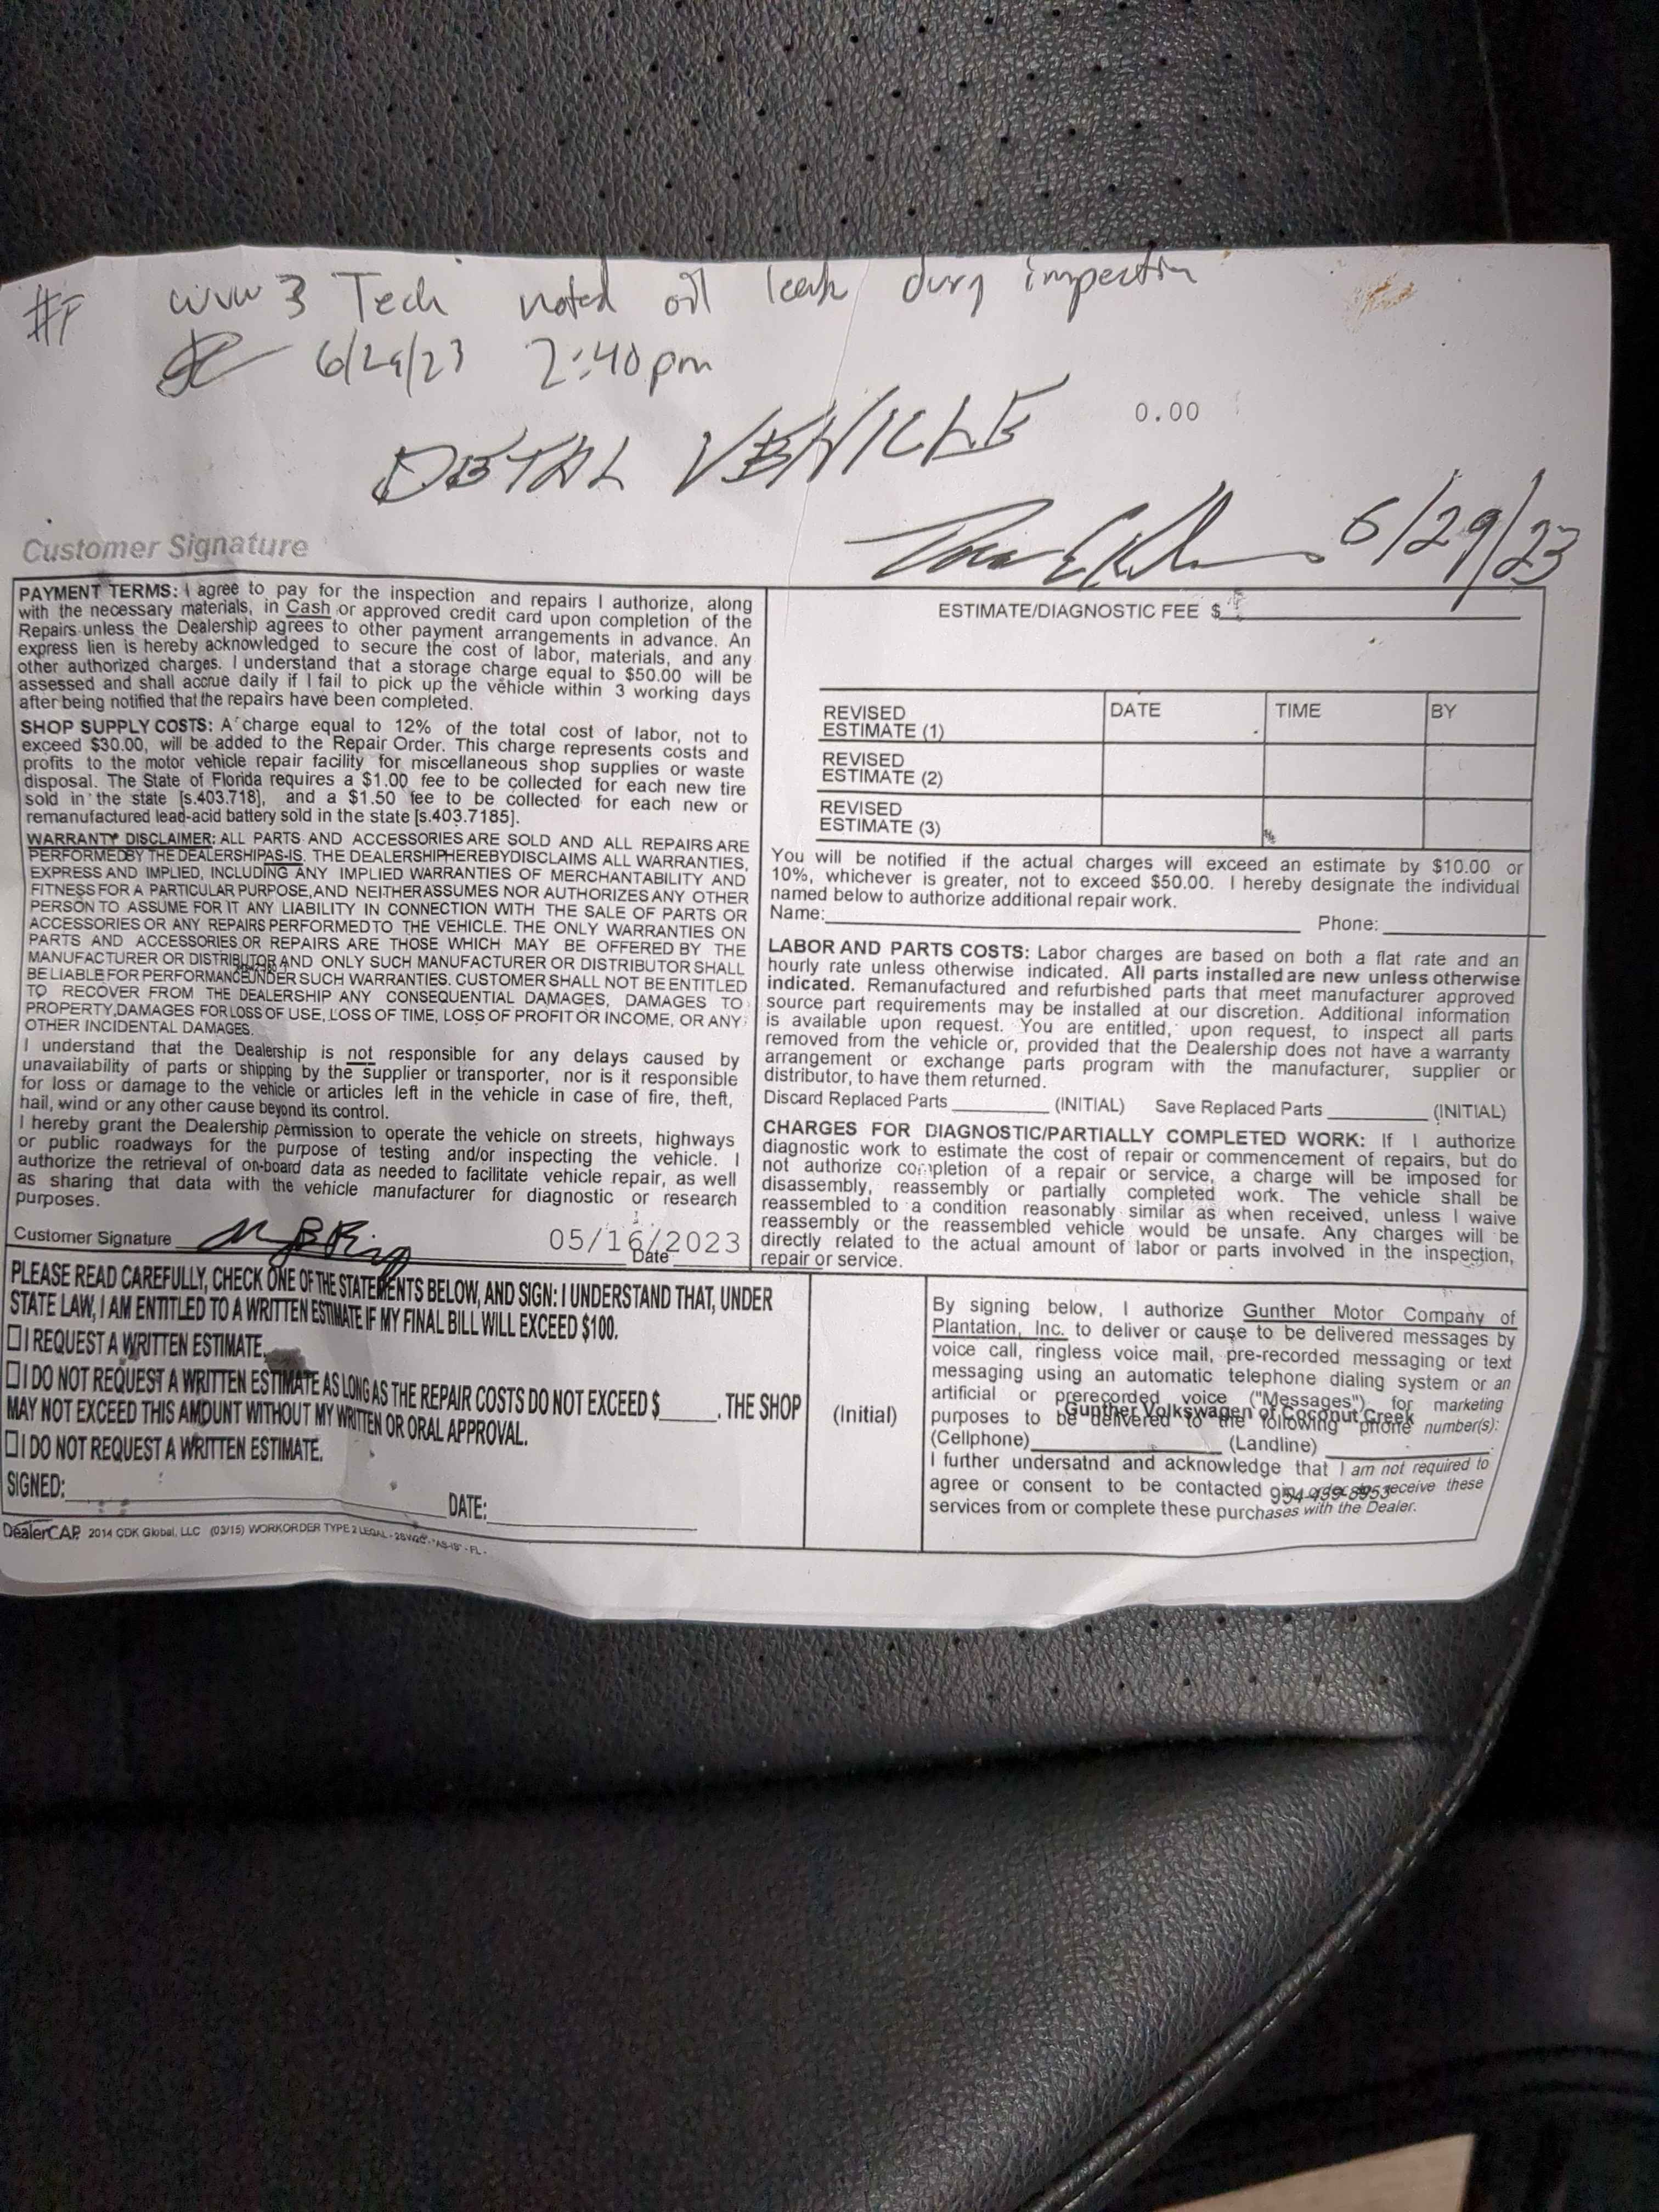 #F wvw 3 Tech noted oil leak durg inspectin
6/29/23 2:40pm
DETAL VEHICLE
0.00
6/29/23
Customer Signature
PAYMENT TERMS: I agree to pay for the inspection and repairs I authorize, along
with the necessary materials, in Cash or approved credit card upon completion of the
Repairs unless the Dealership agrees to other payment arrangements in advance. An
express lien is hereby acknowledged to secure the cost of labor, materials, and any
other authorized charges. I understand that a storage charge equal to $50.00 will be
assessed and shall accrue daily if I fail to pick up the vehicle within 3 working days
after being notified that the repairs have been completed.
SHOP SUPPLY COSTS: A charge equal to 12% of the total cost of labor, not to
exceed $30.00, will be added to the Repair Order. This charge represents costs and
profits to the motor vehicle repair facility for miscellaneous shop supplies or waste
disposal. The State of Florida requires a $1.00 fee to be collected for each new tire
sold in the state [s.403.718], and a $1.50 fee to be collected for each new or
remanufactured lead-acid battery sold in the state [s.403.7185].
WARRANTY DISCLAIMER: ALL PARTS AND ACCESSORIES ARE SOLD AND ALL REPAIRS ARE
PERFORMED BY THE DEALERSHIP AS-IS. THE DEALERSHIP HEREBY DISCLAIMS ALL WARRANTIES,
EXPRESS AND IMPLIED, INCLUDING ANY IMPLIED WARRANTIES OF MERCHANTABILITY AND
FITNESS FOR A PARTICULAR PURPOSE, AND NEITHER ASSUMES NOR AUTHORIZES ANY OTHER
PERSON TO ASSUME FOR IT ANY LIABILITY IN CONNECTION WITH THE SALE OF PARTS OR
ACCESSORIES OR ANY REPAIRS PERFORMED TO THE VEHICLE. THE ONLY WARRANTIES ON
PARTS AND ACCESSORIES OR REPAIRS ARE THOSE WHICH MAY BE OFFERED BY THE
MANUFACTURER OR DISTRIBUTOR AND ONLY SUCH MANUFACTURER OR DISTRIBUTOR SHALL
BE LIABLE FOR PERFORMANCE UNDER SUCH WARRANTIES. CUSTOMER SHALL NOT BE ENTITLED
TO RECOVER FROM THE DEALERSHIP ANY CONSEQUENTIAL DAMAGES, DAMAGES TO
PROPERTY, DAMAGES FOR LOSS OF USE, LOSS OF TIME, LOSS OF PROFIT OR INCOME, OR ANY
OTHER INCIDENTAL DAMAGES.
I understand that the Dealership is not responsible for any delays caused by
unavailability of parts or shipping by the supplier or transporter, nor is it responsible
for loss or damage to the vehicle or articles left in the vehicle in case of fire, theft,
hail, wind or any other cause beyond its control.
I hereby grant the Dealership permission to operate the vehicle on streets, highways
or public roadways for the purpose of testing and/or inspecting the vehicle. I
authorize the retrieval of on-board data as needed to facilitate vehicle repair, as well
as sharing that data with the vehicle manufacturer for diagnostic or research
purposes.
Customer Signature 05/16/2023
Date
ESTIMATE/DIAGNOSTIC FEE $
REVISED ESTIMATE (1) DATE TIME BY
REVISED ESTIMATE (2)
REVISED ESTIMATE (3)
You will be notified if the actual charges will exceed an estimate by $10.00 or
10%, whichever is greater, not to exceed $50.00. I hereby designate the individual
named below to authorize additional repair work.
Name: Phone:
LABOR AND PARTS COSTS: Labor charges are based on both a flat rate and an
hourly rate unless otherwise indicated. All parts installed are new unless otherwise
indicated. Remanufactured and refurbished parts that meet manufacturer approved
source part requirements may be installed at our discretion. Additional information
is available upon request. You are entitled, upon request, to inspect all parts
removed from the vehicle or, provided that the Dealership does not have a warranty
arrangement or exchange parts program with the manufacturer, supplier or
distributor, to have them returned.
Discard Replaced Parts (INITIAL) Save Replaced Parts (INITIAL)
CHARGES FOR DIAGNOSTIC/PARTIALLY COMPLETED WORK: If I authorize
diagnostic work to estimate the cost of repair or commencement of repairs, but do
not authorize completion of a repair or service, a charge will be imposed for
disassembly, reassembly or partially completed work. The vehicle shall be
reassembled to a condition reasonably similar as when received, unless I waive
reassembly or the reassembled vehicle would be unsafe. Any charges will be
directly related to the actual amount of labor or parts involved in the inspection,
repair or service.
PLEASE READ CAREFULLY, CHECK ONE OF THE STATEMENTS BELOW, AND SIGN: I UNDERSTAND THAT, UNDER
STATE LAW, I AM ENTITLED TO A WRITTEN ESTIMATE IF MY FINAL BILL WILL EXCEED $100.
☐ I REQUEST A WRITTEN ESTIMATE.
☐ I DO NOT REQUEST A WRITTEN ESTIMATE AS LONG AS THE REPAIR COSTS DO NOT EXCEED $_____. THE SHOP
MAY NOT EXCEED THIS AMOUNT WITHOUT MY WRITTEN OR ORAL APPROVAL.
☐ I DO NOT REQUEST A WRITTEN ESTIMATE.
SIGNED: DATE:
(Initial)
By signing below, I authorize Gunther Motor Company of
Plantation, Inc. to deliver or cause to be delivered messages by
voice call, ringless voice mail, pre-recorded messaging or text
messaging using an automatic telephone dialing system or an
artificial or prerecorded voice ("Messages") for marketing
Gunther Volkswagen of Coconut Creek
purposes to be delivered to the following phone number(s):
(Cellphone) (Landline)
I further undersatnd and acknowledge that I am not required to
agree or consent to be contacted receive these
954-459-8953
services from or complete these purchases with the Dealer.
DealerCAP 2014 CDK Global, LLC (03/15) WORKORDER TYPE 2 LEGAL - "AS-IS" - FL -